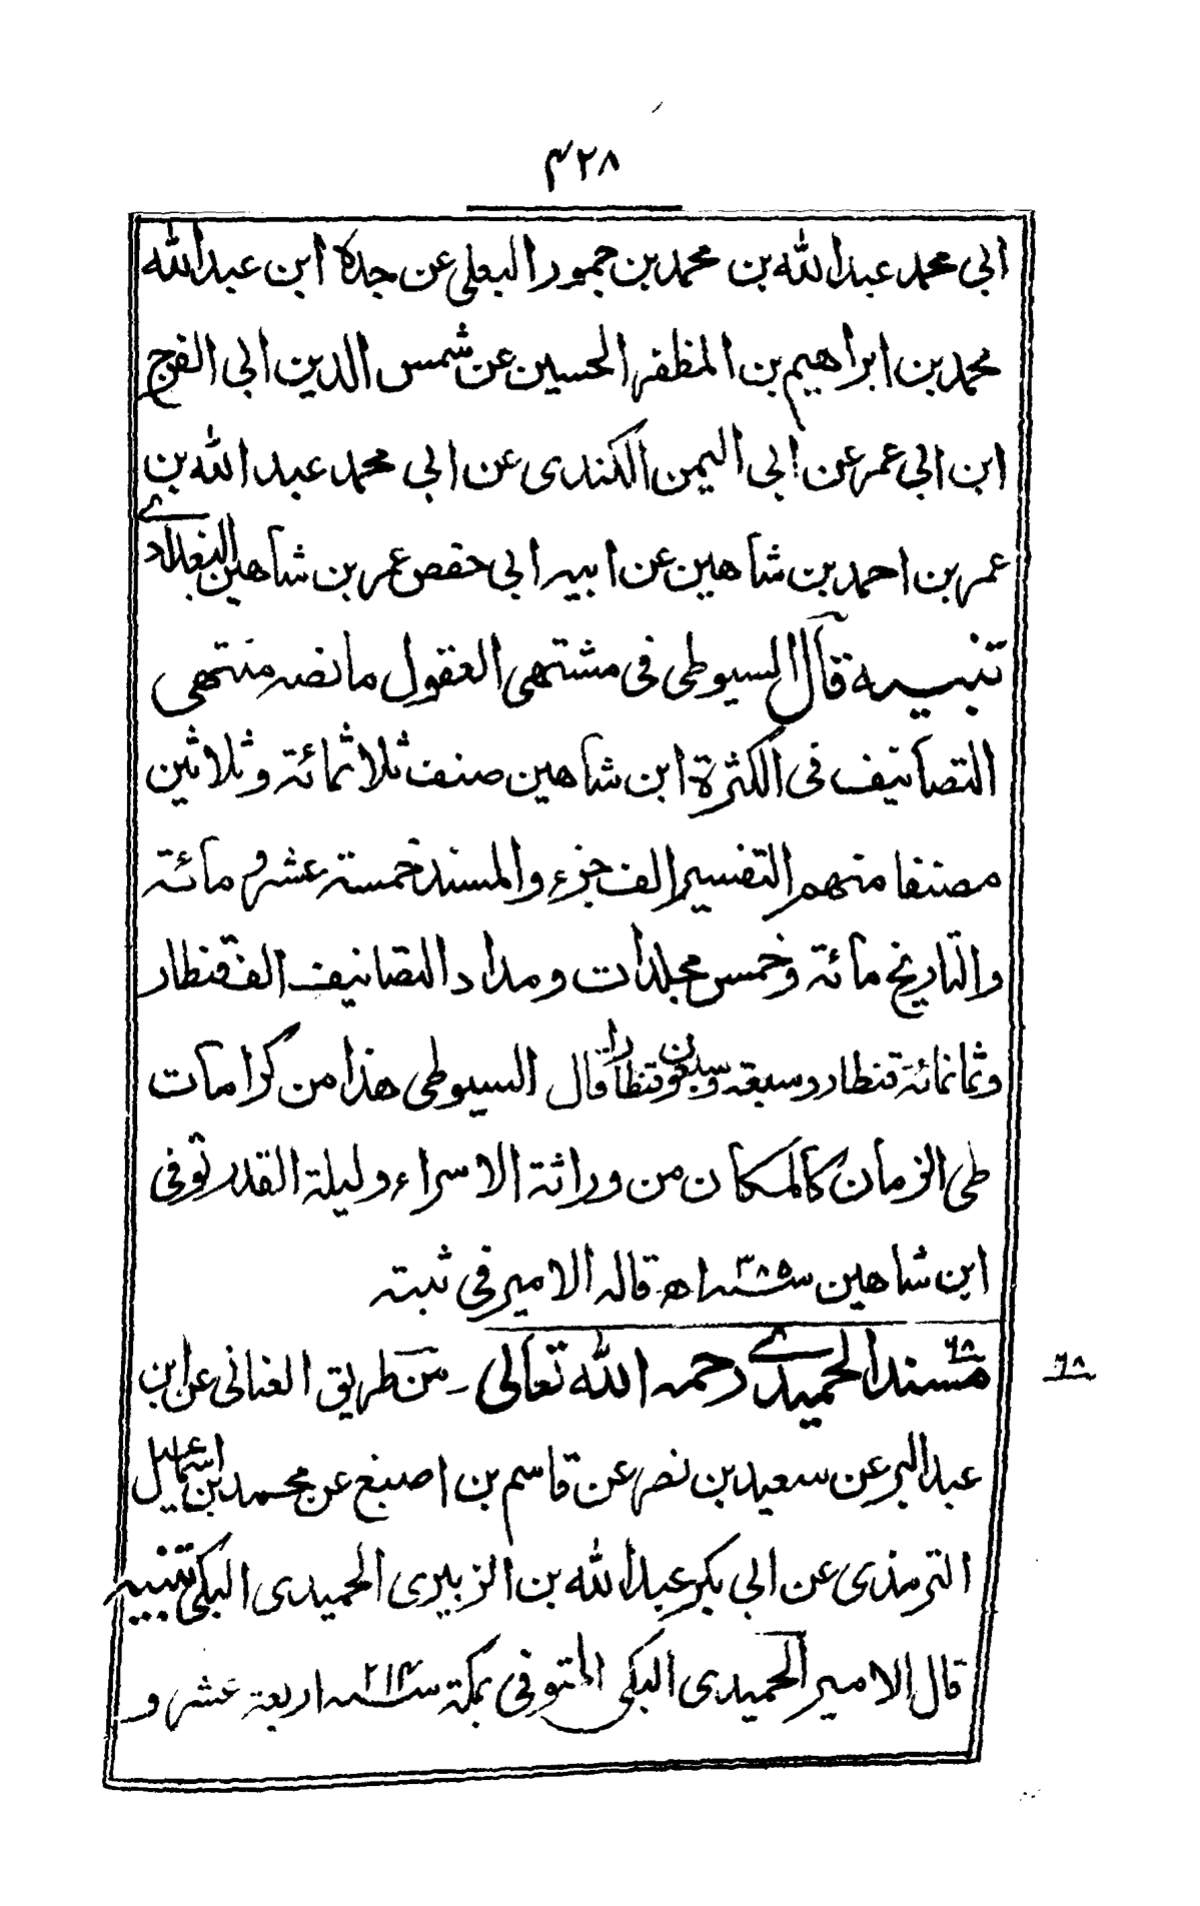 ٤٢٨
ابی محمد عبدالله بن محمد بن جمهور البعلی عن جده ابن عبدالله
محمد بن ابراهیم بن المظفر الحسین عن شمس الدین ابی الفرج
ابن ابی عمر عن ابی الیمن الکندی عن ابی محمد عبد الله بن
عمر بن احمد بن شاهین عن ابیه ابی حفص عمر بن شاهین البغدادے
تنبیه قال السیوطی فی مشتهی العقول ما نصه منتهی
التصانیف فی الکثرة ابن شاهین صنف ثلاثمائة وثلاثین
مصنفا منهم التفسیر الف جزء والمسند خمسة عشر و مائة
والتاریخ مائة وخمس مجلدات ومداد التصانیف الف قنطار
وثمانمائة قنطار وسبعة وسبعون قنطارا قال السیوطی هذا من کرامات
طی الزمان کالمکان من وراثة الاسراء ولیلة القدر توفی
ابن شاهین سنه ٣٨٥ اه قاله الامیر فی ثبته
٦٨
مسند الحمیدے رحمه الله تعالی - من طریق الغنانی عن ابن
٦٨
عبد البر عن سعید بن نصر عن قاسم بن اصبغ عن محمد بن اسماعیل
الترمذی عن ابی بکر عبد الله بن الزبیری الحمیدی المکی تنبیه
قال الامیر الحمیدی المکی المتوفی بمکة سنه ٢١٤ اربعة عشر و